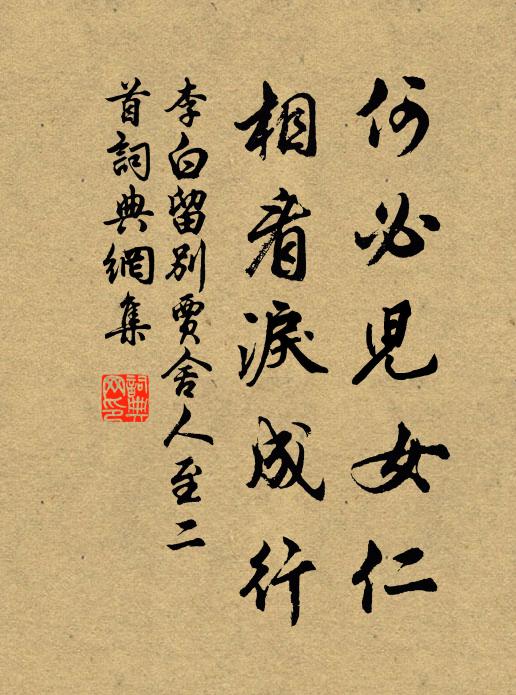 何必兒女仁
相看淚成行
李白留別賈舍人至二
首詞典網集
詞典
网印